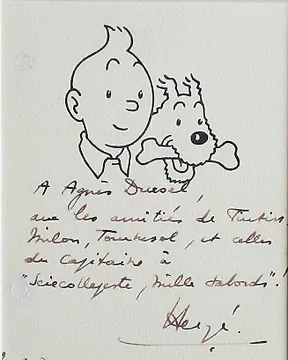 A Agnès Duesel,
avec les amitiés de Tintin,
Milou, Tournesol, et celles
du Capitaine à
"Sciecollegeste, Mille sabords"!
Hergé.